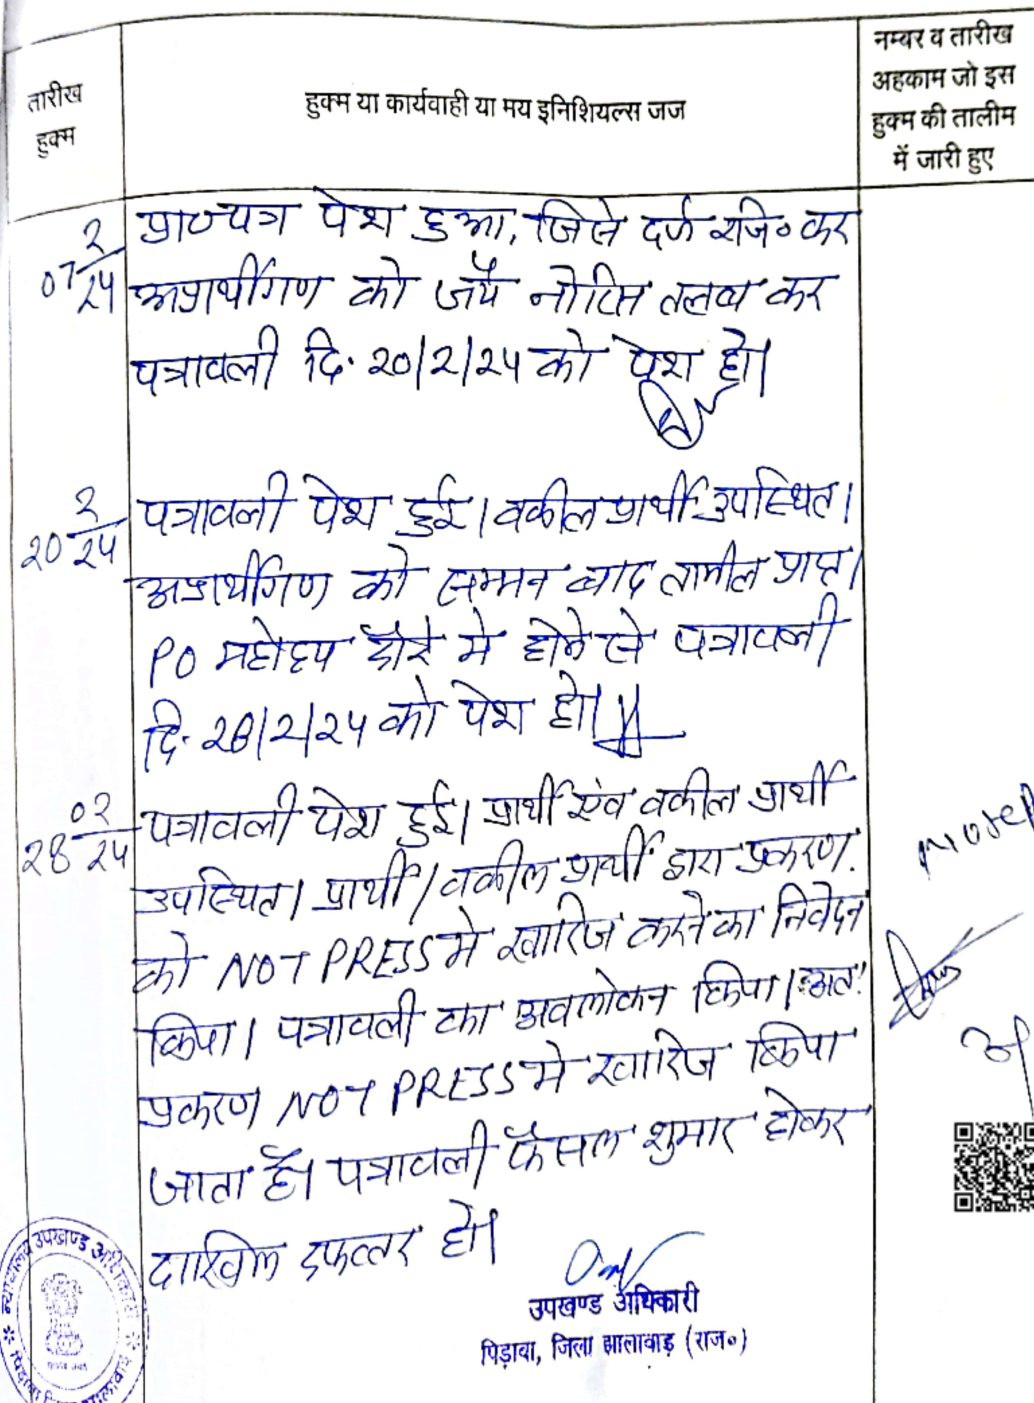 तारीख
हुक्म
हुक्म या कार्यवाही या मय इनिशियल्स जज
नम्बर व तारीख
अहकाम जो इस
हुक्म की तालीम
में जारी हुए
07 2/24
प्रा०पत्र पेश हुआ, जिसे दर्ज रजि० कर
अप्रार्थीगण को जर्ये नोटिस तलब कर
पत्रावली दि. 20/2/24 को पेश हो।
20 2/24
पत्रावली पेश हुई। वकील प्रार्थी उपस्थित।
अप्रार्थीगण को सम्मन बाद तामील प्राप्त।
PO महोदय दौरे मे होने से पत्रावली
दि. 28/2/24 को पेश हो।
28 02/24
पत्रावली पेश हुई। प्रार्थी एंव वकील प्रार्थी
उपस्थित। प्रार्थी/वकील प्रार्थी द्वारा प्रकरण
को NOT PRESS मे खारिज करने का निवेदन
किया। पत्रावली का अवलोकन किया। अत:
प्रकरण NOT PRESS मे खारिज किया
जाता है। पत्रावली फैसल शुमार होकर
दाखिल दफ्तर हो।
उपखण्ड अधिकारी
पिड़ावा, जिला झालावाड़ (राज०)
न्यायालय उपखण्ड अधिकारी